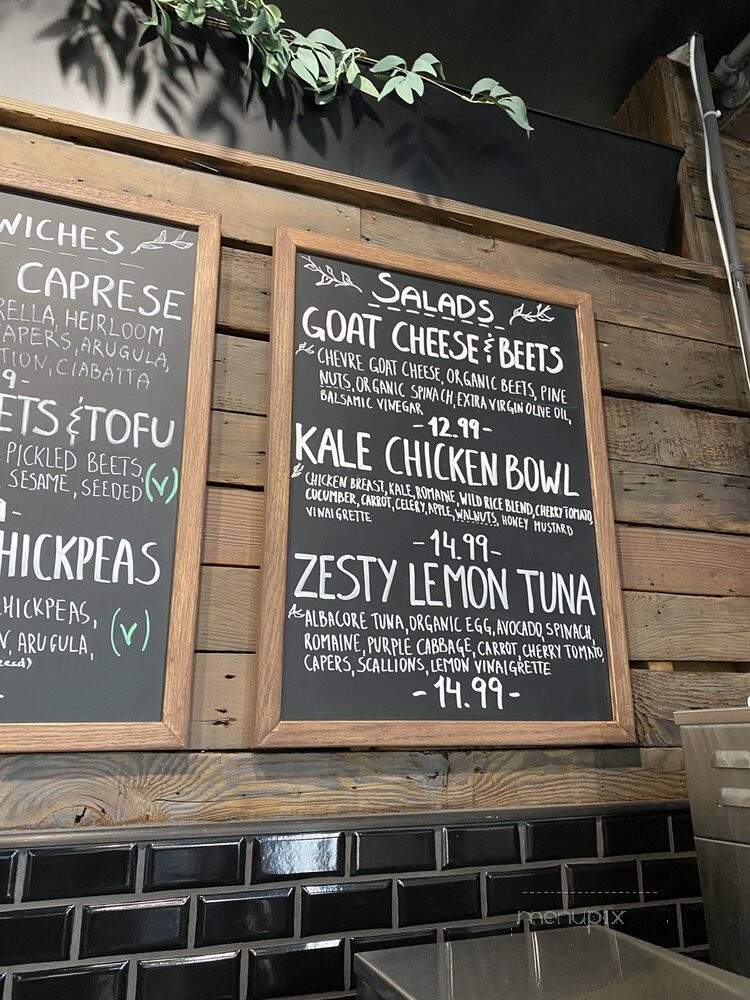 WICHES
CAPRESE
RELLA, HEIRLOOM
APERS, ARUGULA,
TION, CIABATTA
9-
ETS & TOFU
PICKLED BEETS,
SESAME, SEEDED (V)
-
HICKPEAS
HICKPEAS,
N, ARUGULA, (V)
-
SALADS
GOAT CHEESE & BEETS
CHEVRE GOAT CHEESE, ORGANIC BEETS, PINE
NUTS, ORGANIC SPINACH, EXTRA VIRGIN OLIVE OIL,
BALSAMIC VINEGAR
-12.99-
KALE CHICKEN BOWL
CHICKEN BREAST, KALE, ROMAINE, WILD RICE BLEND, CHERRY TOMATO,
CUCUMBER, CARROT, CELERY, APPLE, WALNUTS, HONEY MUSTARD
VINAIGRETTE
-14.99-
ZESTY LEMON TUNA
ALBACORE TUNA, ORGANIC EGG, AVOCADO, SPINACH,
ROMAINE, PURPLE CABBAGE, CARROT, CHERRY TOMATO,
CAPERS, SCALLIONS, LEMON VINAIGRETTE
-14.99-
menupix